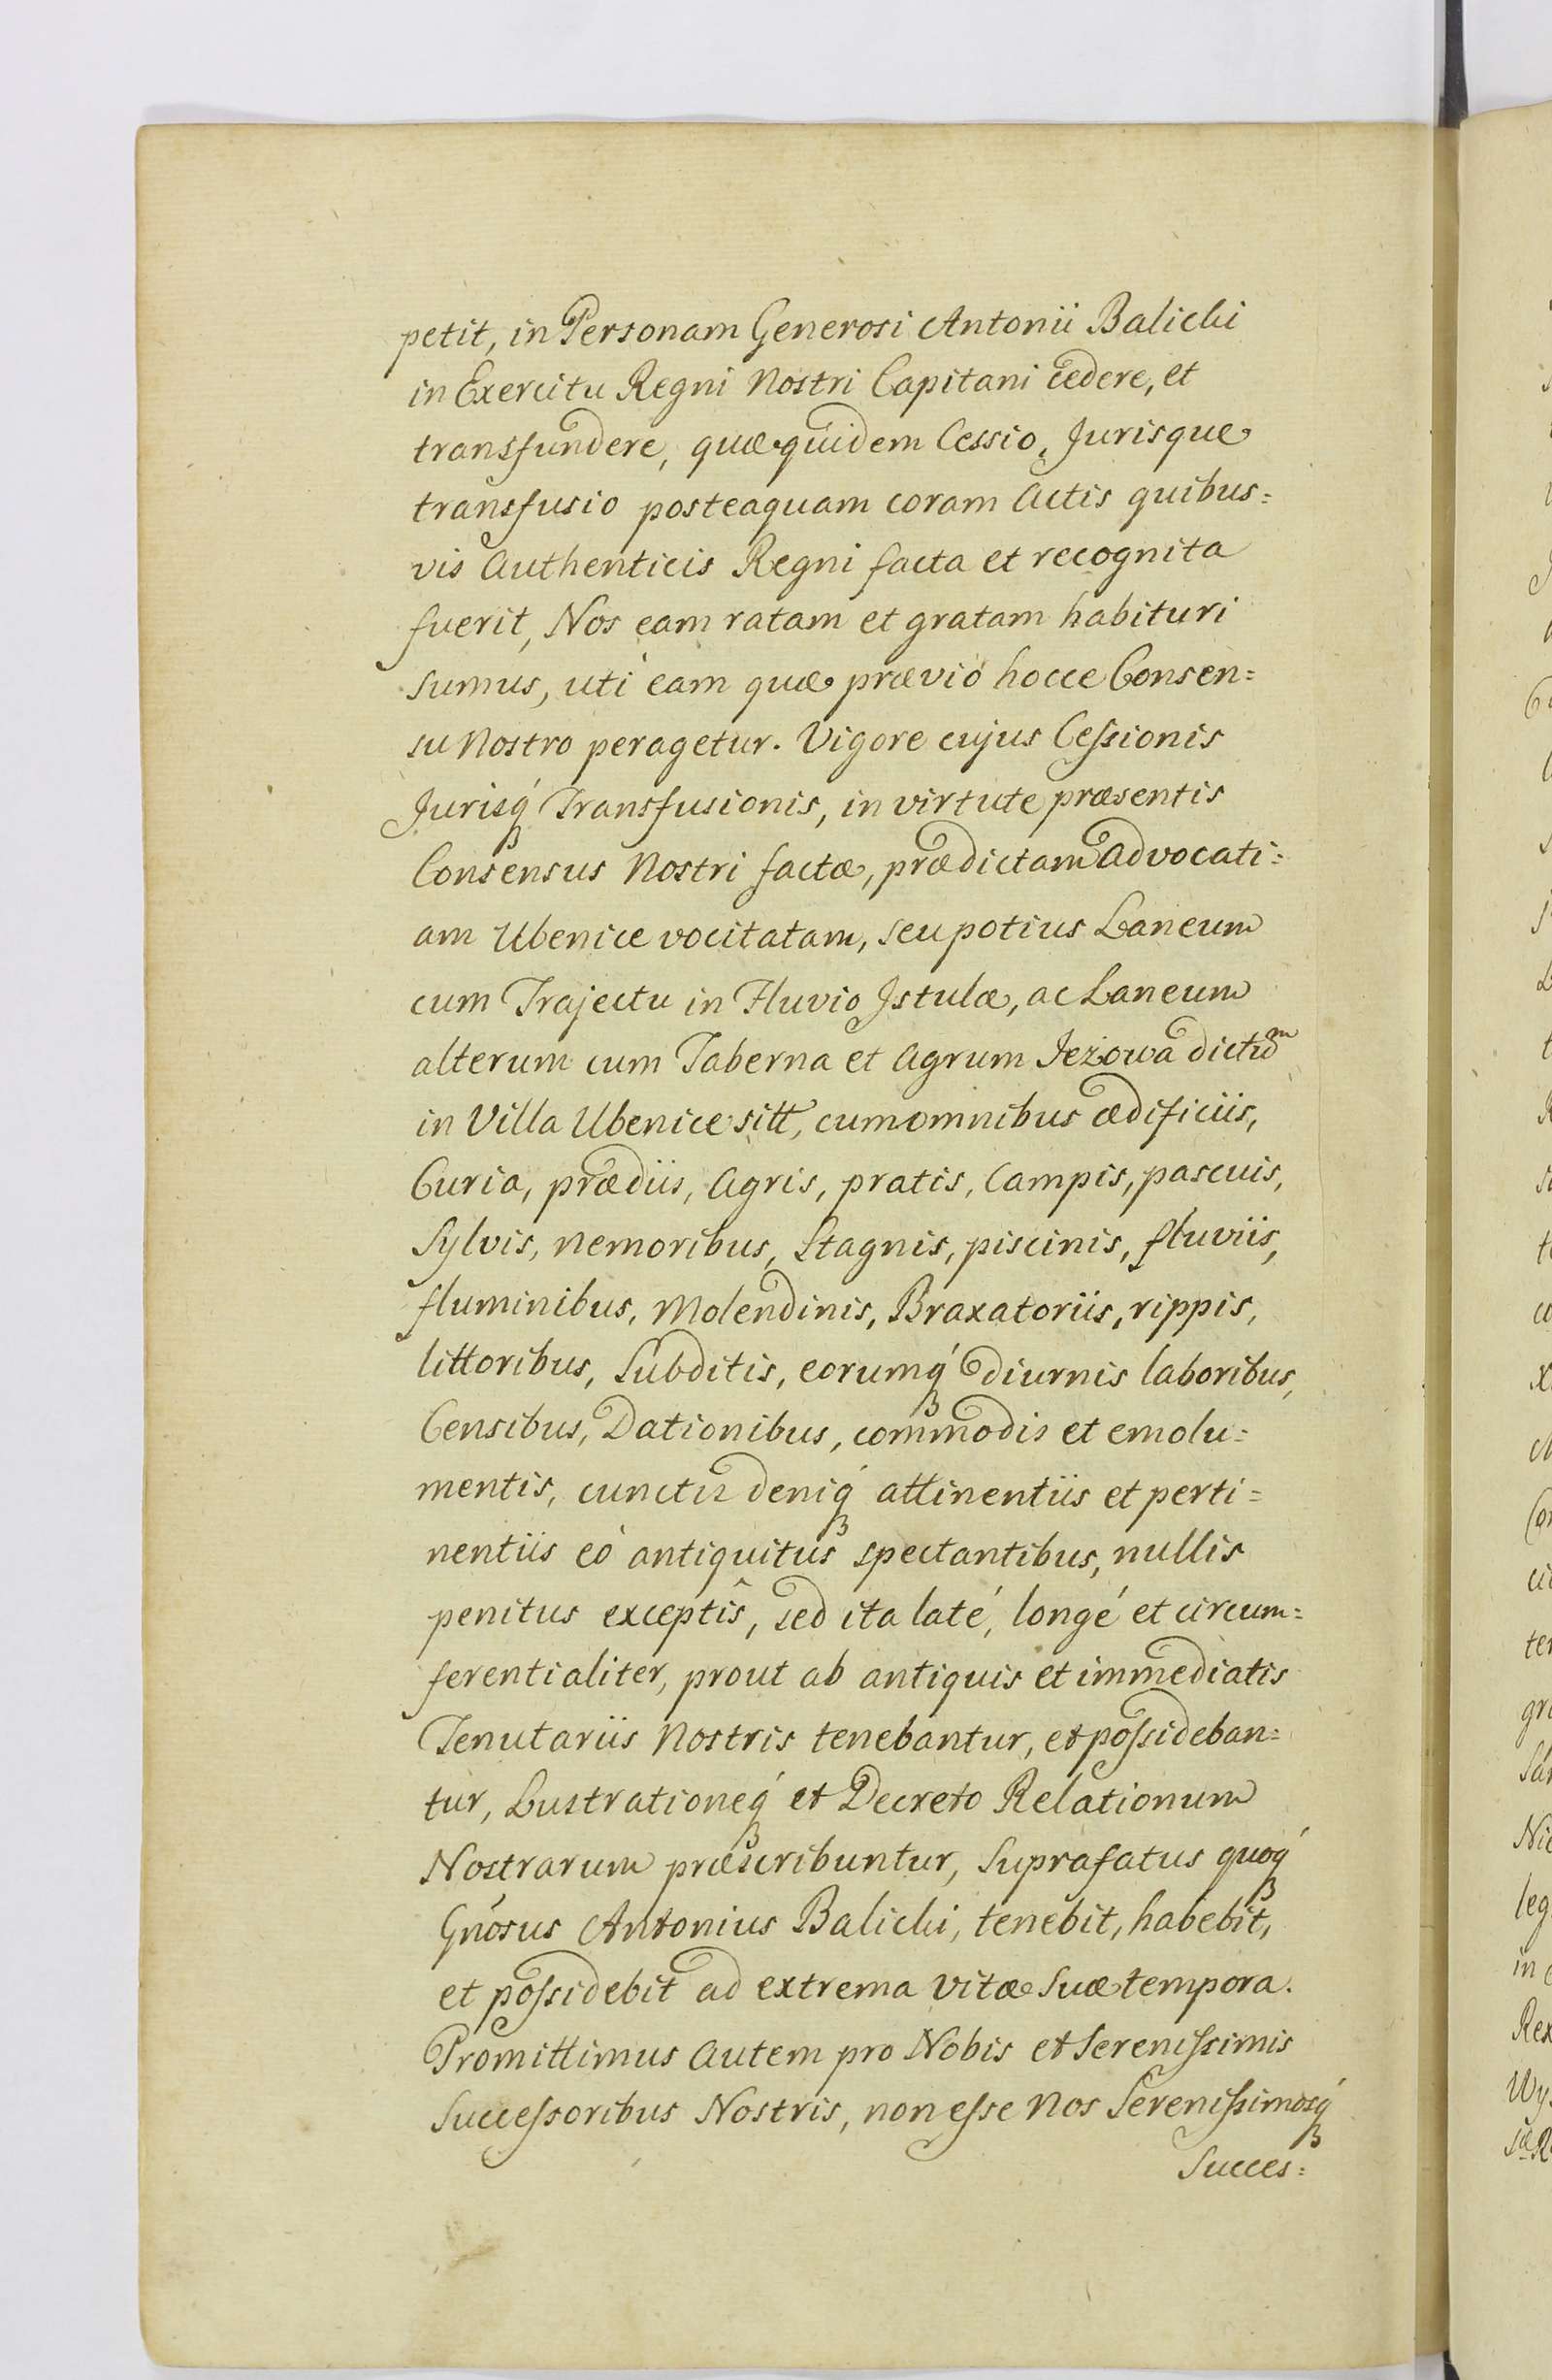 petit, in Personam Generosi Antonii Balicki
in Exercitu Regni Nostri Capitani cedere, et
transfundere, quæ quidem Cessio, Jurisque
transfusio posteaquam coram Actis quibus=
vis Authenticis Regni facta et recognita
fuerit, Nos eam ratam et gratam habituri
sumus, uti eam quæ prævió hocce Consen=
su Nostro peragetur. Vigore cujus Ceſsionis
Jurisq́ꝫ Transfusionis, in virtute præsentis
Consensus Nostri factæ, prædictam Advocati=
am Ubenice vocitatam, seu potius Laneum
cum Trajectu in Fluvio Istulæ, ac Laneum
alterum cum Taberna et Agrum Jeżowa dictũᵐ
in Villa Ubenice sitt, cum omnibus ædificiis,
Curia, prædiis, Agris, pratis, Campis, pascuis,
Sylvis, nemoribus, Stagnis, piscinis, fluviis,
fluminibus, Molendinis, Braxatoriis, rippis,
littoribus, Subditis, eorumq́ꝫ diurnis laboribus,
Censibus, Dationibus, commodis et emolu=
mentis, cunctis deniq́ꝫ attinentiis et perti=
nentiis eó antiquitus spectantibus, nullis
penitus exceptîs, sed ita laté, longé et circum=
ferentialiter, prout ab antiquis et immediatis
Tenutariis Nostris tenebantur, et poſsideban=
tur, Lustrationeq́ꝫ et Decreto Relationum
Nostrarum præscribuntur, Suprafatus quoq́ꝫ
Gnosus Antonius Balicki, tenebit, habebit,
et poſsidebit ad extrema vitæ suæ tempora.
Promittimus Autem pro Nobis et Sereniſsimis
Succeſsoribus Nostris, non eſse Nos Sereniſsimosq́ꝫ
Succes=